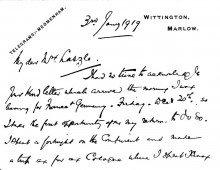 TELEGRAMS-MEDMENHAM.
WITTINGTON,
MARLOW.
3rd Jany 1919
My dear Mrs Laszlo.
This is to acknowledge
your kind letter which arrived the morning I was
leaving for France & Germany. Friday. Dec 20th. so
I take the first opportunity after my return to do so.
I spent a fortnight on the Continent and made
a trip as far as Cologne where I spent Xmas